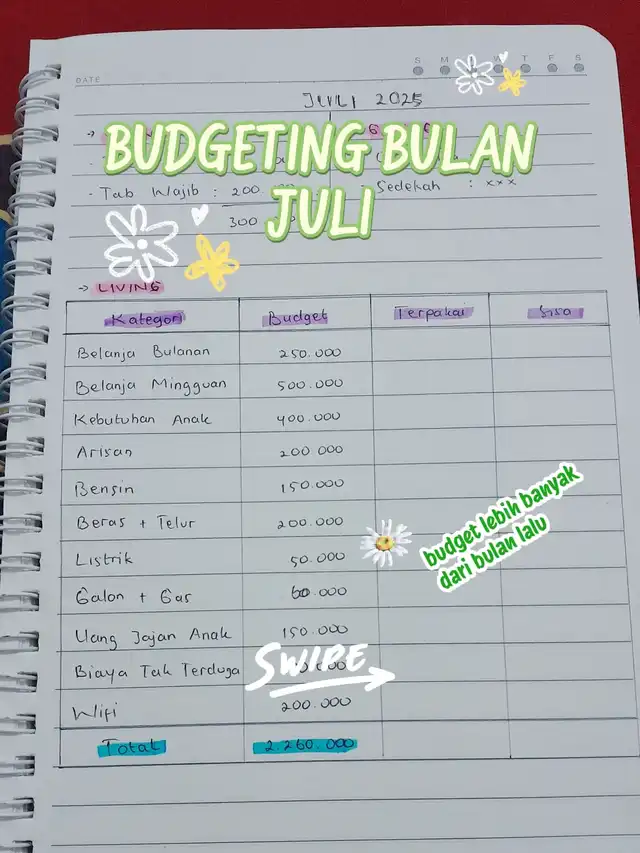 DATE
S M W T F S
JULI 2025
BUDGETING BULAN
JULI
- Tab Wajib : 200.
- Sedekah : xxx
300
→ LIVING
Kategori Budget Terpakai Sisa
Belanja Bulanan 250.000
Belanja Mingguan 500.000
Kebutuhan Anak 400.000
Arisan 200.000
Bensin 150.000
Beras + Telur 200.000
Listrik 50.000
Galon + Gas 60.000
Uang Jajan Anak 150.000
Biaya Tak Terduga
Wifi 200.000
Total 2.260.000
budget lebih banyak
dari bulan lalu
SWIPE